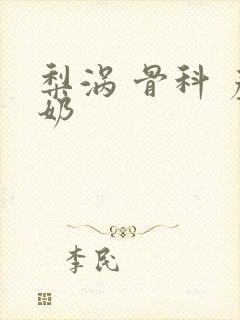 梨涡 骨科
奶
李民